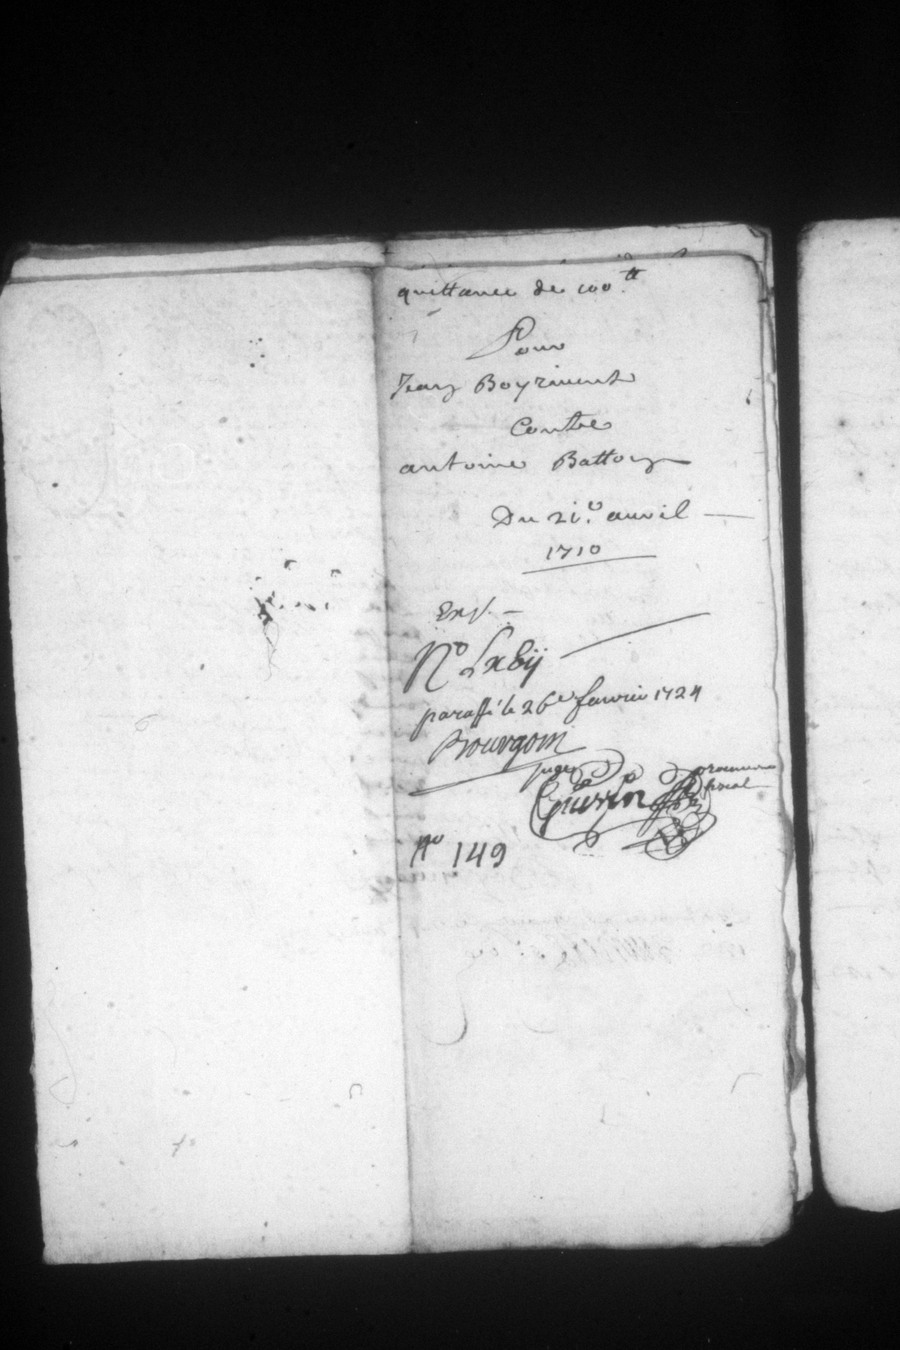 quittance de 100.tt
Pour
Jean Boyriuent
Contre
antoine Battoin
Du 21.e auril
1710
Exp.
No Lxbij
paraffé le 26e feurier 1724
Bourgoin
juge
procureur
fiscal
No 149